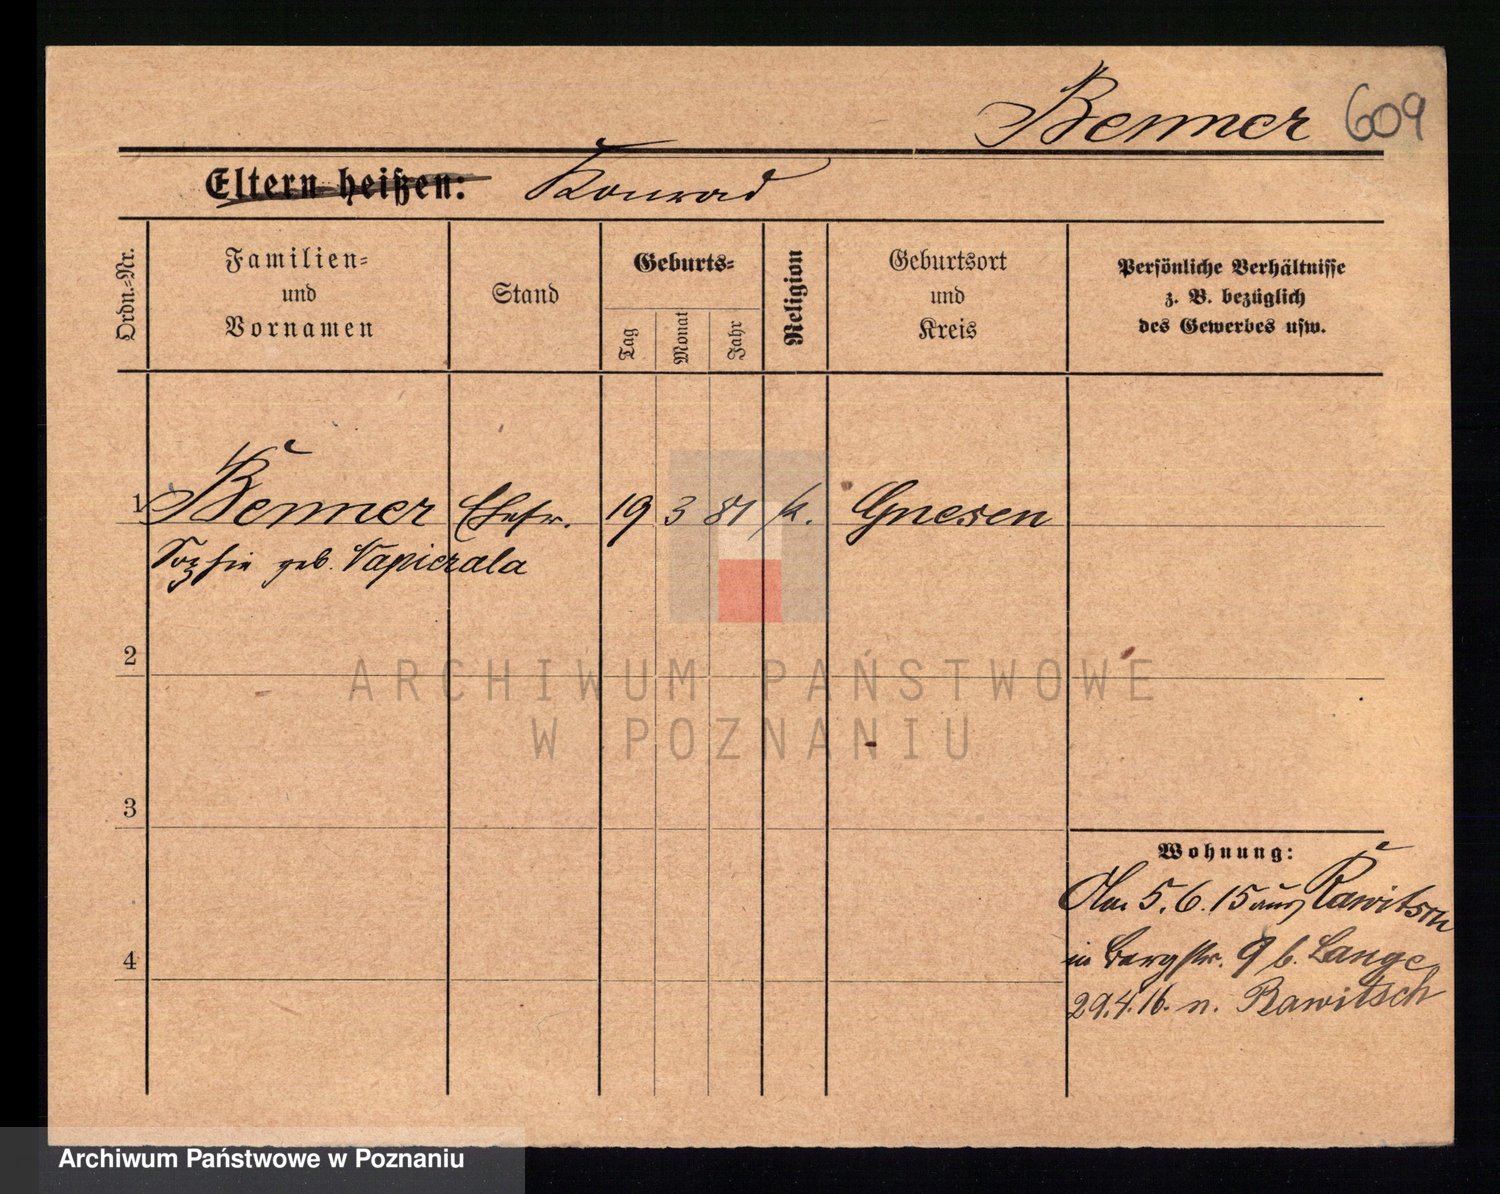 Benner 609
Eltern heißen: Konrad
Ordn.-Nr.
Familien-
und
Vornamen
Stand
Geburts-
Tag
Monat
Jahr
Religion
Geburtsort
und
Kreis
Persönliche Verhältnisse
z. B. bezüglich
des Gewerbes usw.
1 Benner Ehefr. 19 3 81 k. Gnesen
Sophie geb. Napierala
2
3
4
Wohnung:
5.6.15 aus Rawitsch
in Bergstr. 9 b. Lange
29.4.16. n. Rawitsch
ARCHIWUM PAŃSTWOWE
W POZNANIU
Archiwum Państwowe w Poznaniu